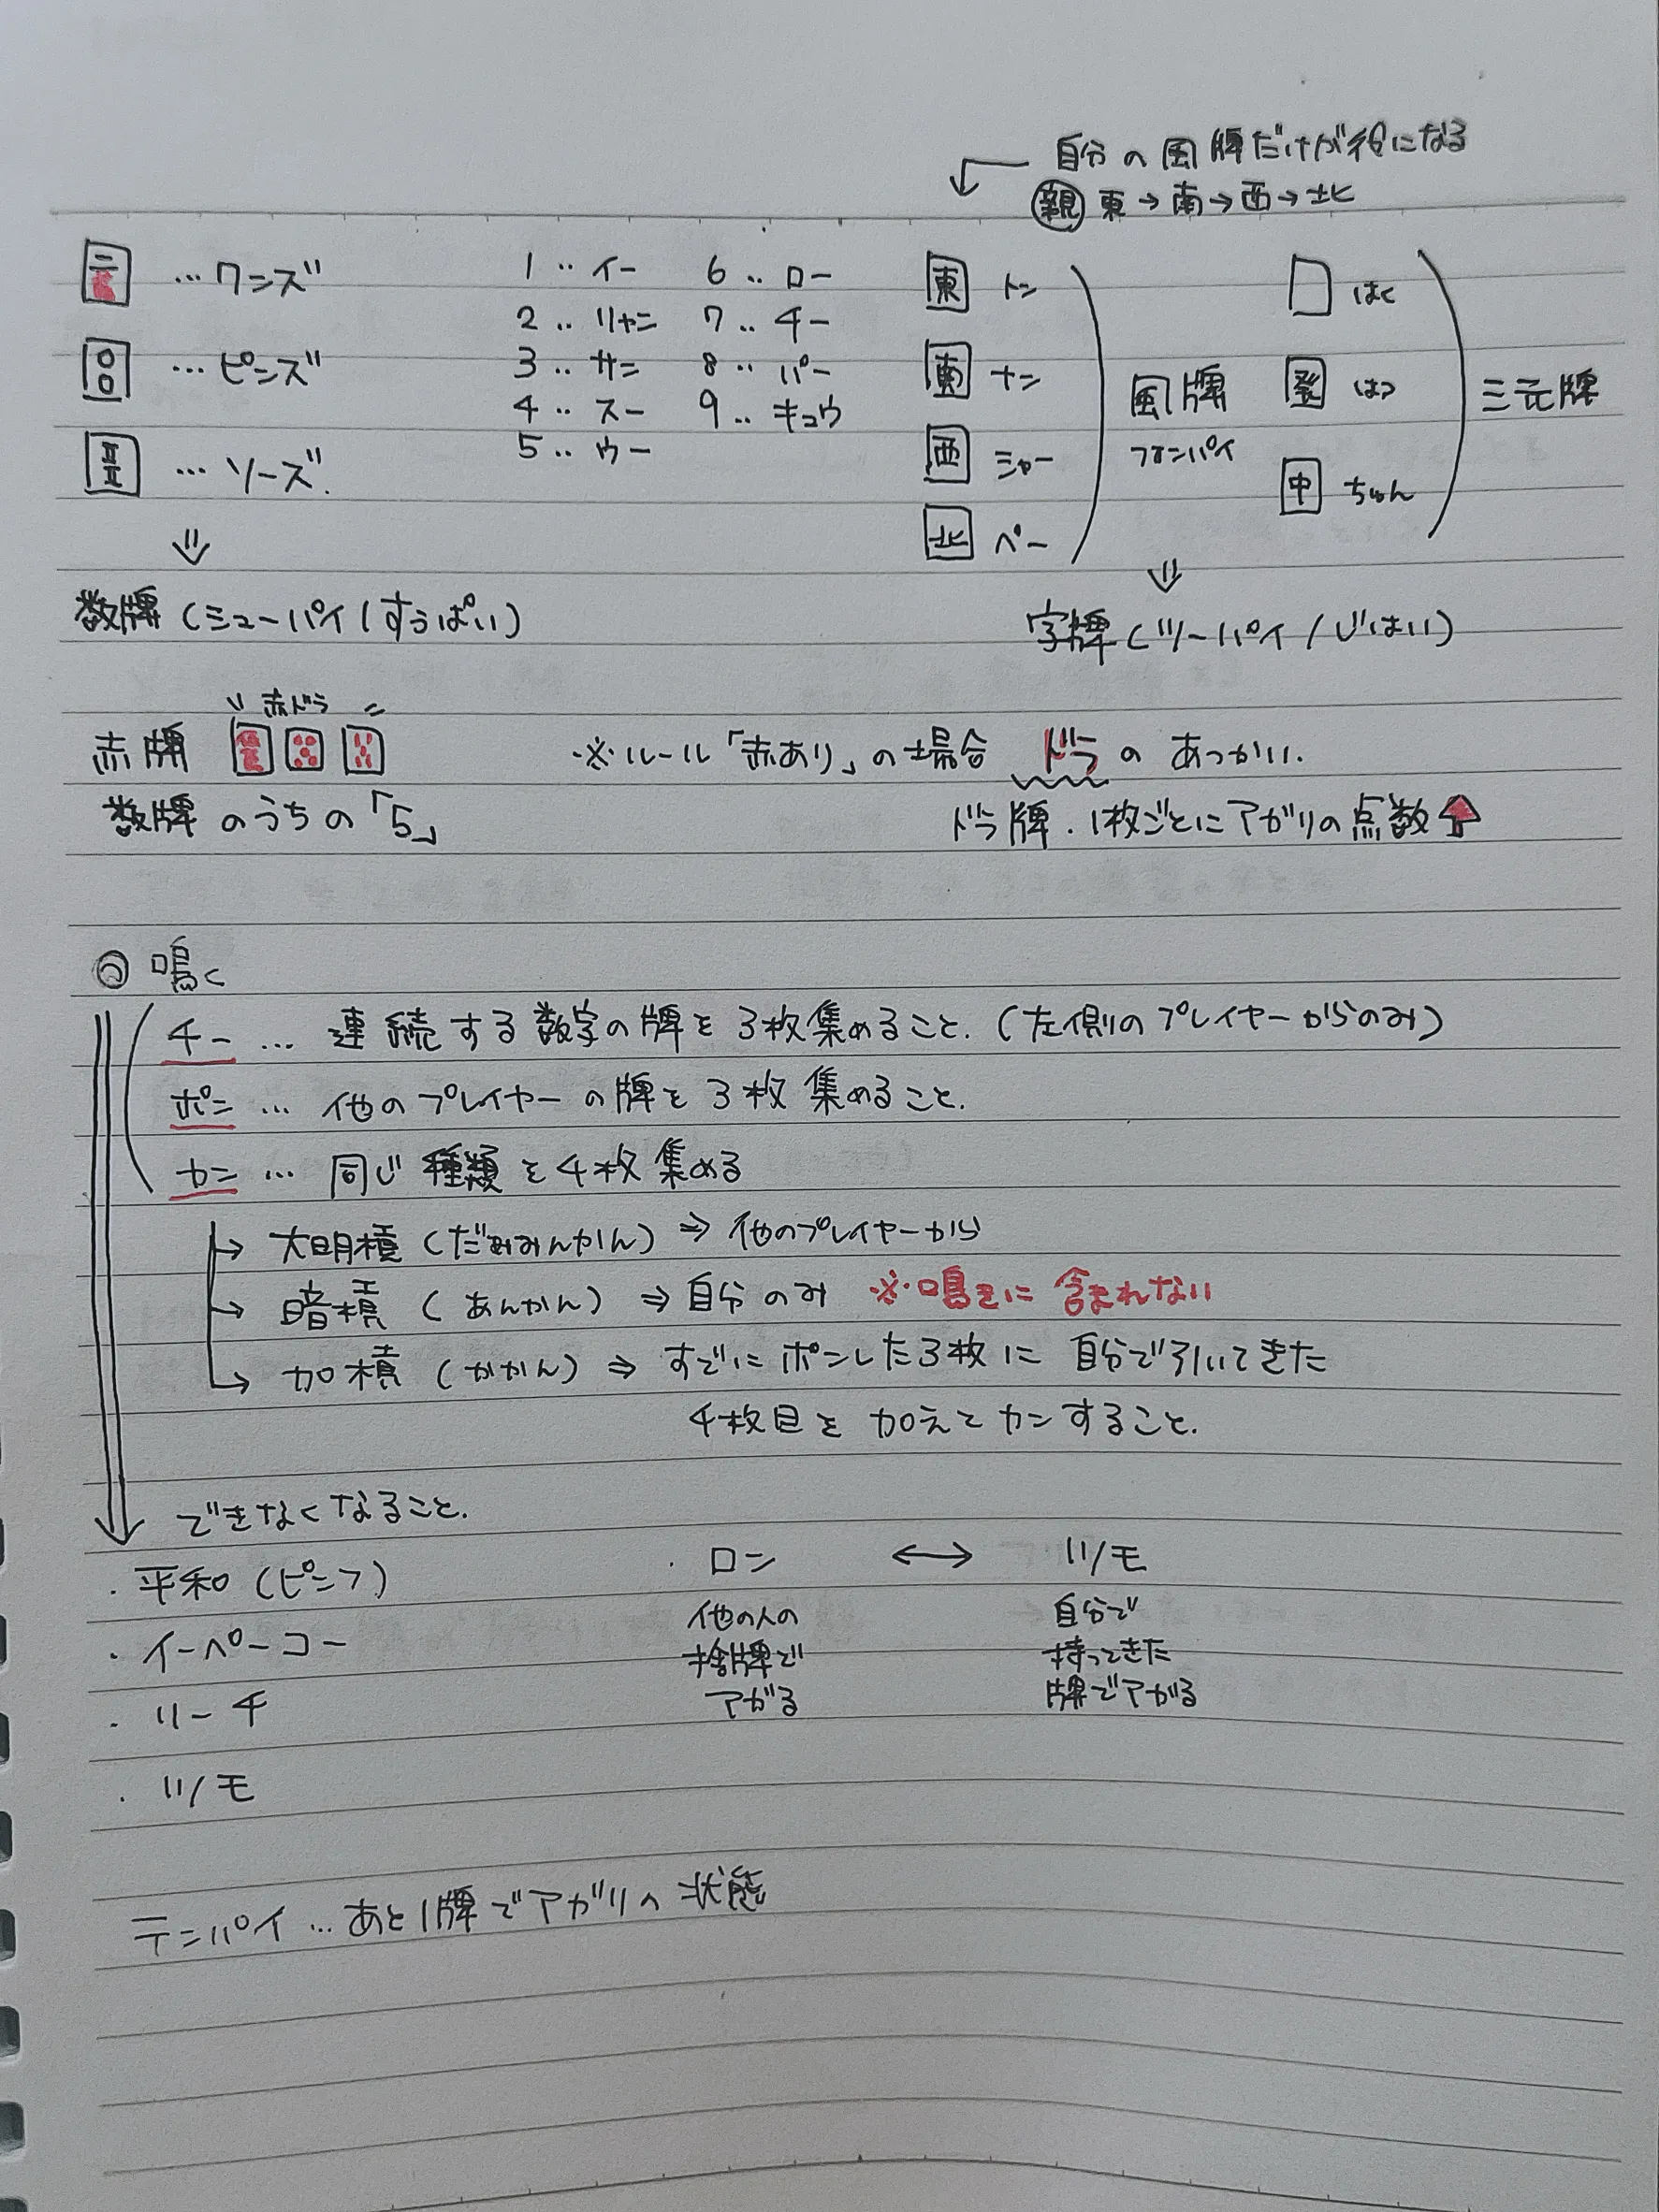 自分の風牌だけが役になる
親 東→南→西→北
二 …ワンズ
…ピンズ
…ソーズ.
1‥イー 6‥ロー
2‥リャン 7‥チー
3‥サン 8‥パー
4‥スー 9‥キュウ
5‥ウー
東 トン
南 ナン
西 シャー
北 ペー
風牌
フォンパイ
はく
發 はつ
中 ちゅん
三元牌
数牌(シューパイ/すうぱい)
字牌(ツーパイ/じはい)
赤ドラ
赤牌
※ルール「赤あり」の場合 ドラのあつかい.
数牌のうちの「5」
ドラ牌.1枚ごとにアガリの点数↑
◎鳴く
チー … 連続する数字の牌を3枚集めること.(左側のプレイヤーからのみ)
ポン … 他のプレイヤーの牌を3枚集めること.
カン … 同じ種類を4枚集める
→大明槓(だいみんかん)⇒他のプレイヤーから
→暗槓(あんかん)⇒自分のみ ※鳴きに含まれない
→加槓(かかん)⇒すでにポンした3枚に自分で引いてきた
4枚目を加えてカンすること.
できなくなること.
・平和(ピンフ)
・イーペーコー
・リーチ
・ツモ
・ロン ↔ ツモ
他の人の
捨牌で
アガる
自分で
持ってきた
牌でアガる
テンパイ…あと1牌でアガリの状態